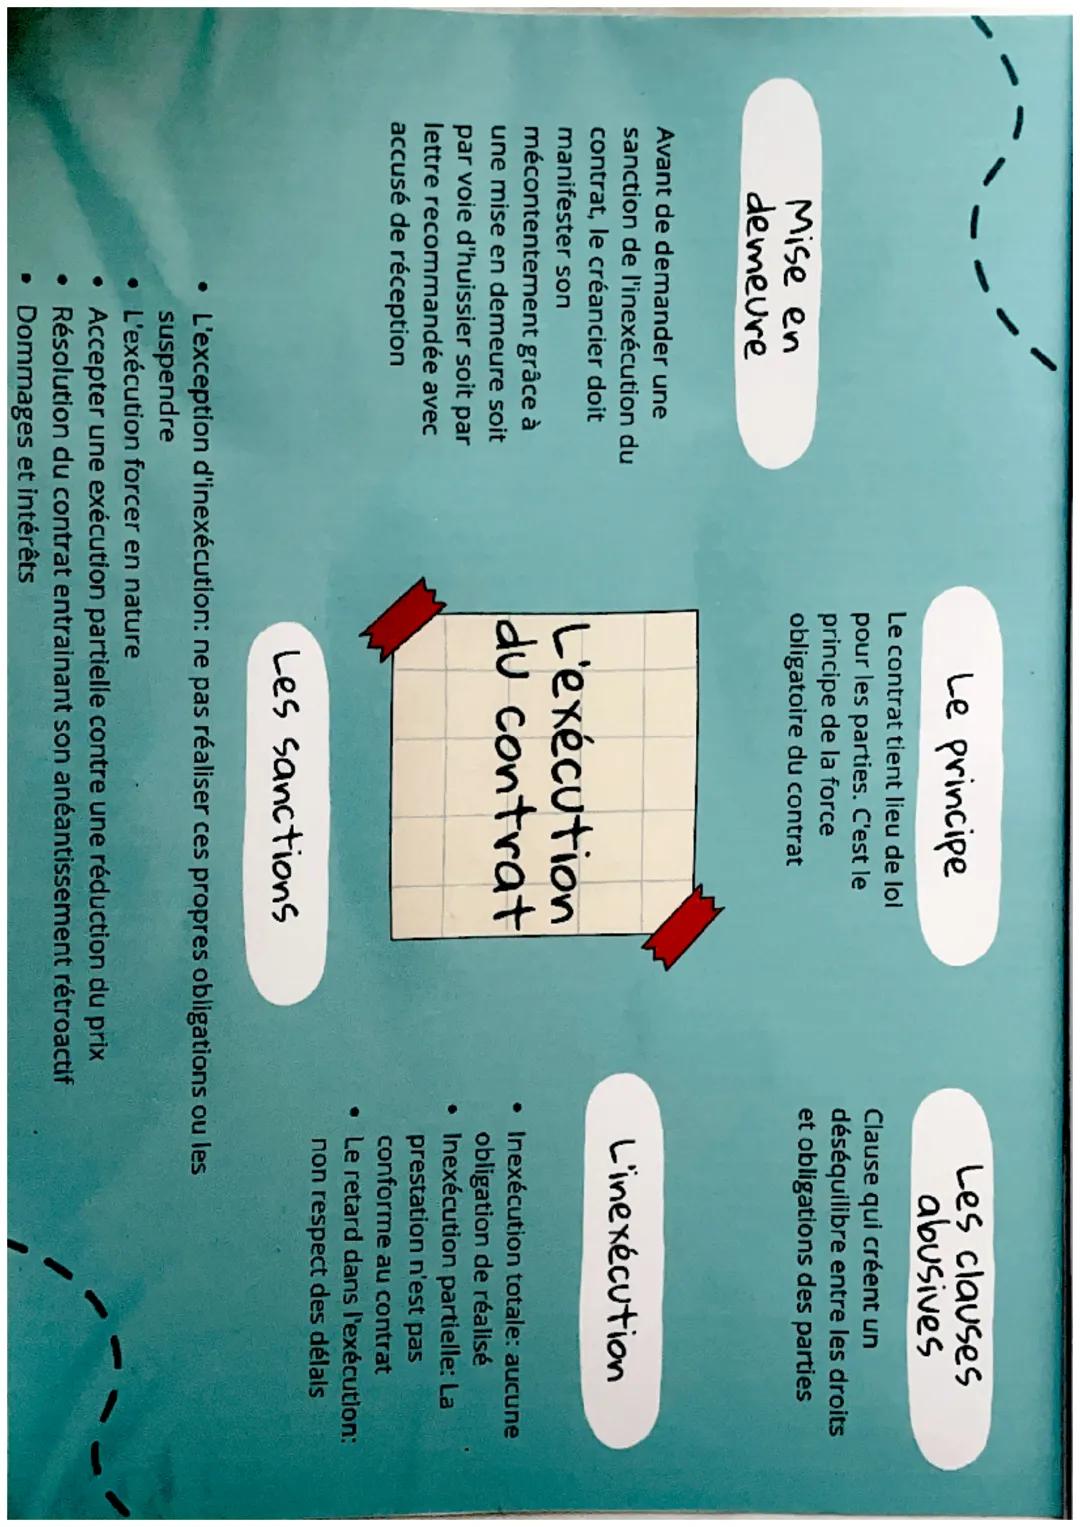 Mise en
demeure
Avant de demander une
sanction de l'inexécution du
contrat, le créancier doit
manifester son
mécontentement grâce à
une mise en demeure soit
par voie d'huissier soit par
lettre recommandée avec
accusé de réception
Le principe
Le contrat tient lieu de lol
pour les parties. C'est le
principe de la force
obligatoire du contrat
Les clauses
abusives
Clause qui créent un
déséquilibre entre les droits
et obligations des parties
L'exécution
du contrat
L'inexécution
• Inexécution totale: aucune
obligation de réalisé
• Inexécution partielle: La
prestation n'est pas
conforme au contrat
• Le retard dans l'exécution:
non respect des délais
Les sanctions
• L'exception d'inexécution: ne pas réaliser ces propres obligations ou les
suspendre
• L'exécution forcer en nature
• Accepter une exécution partielle contre une réduction du prix
• Résolution du contrat entrainant son anéantissement rétroactif
• Dommages et intérêts